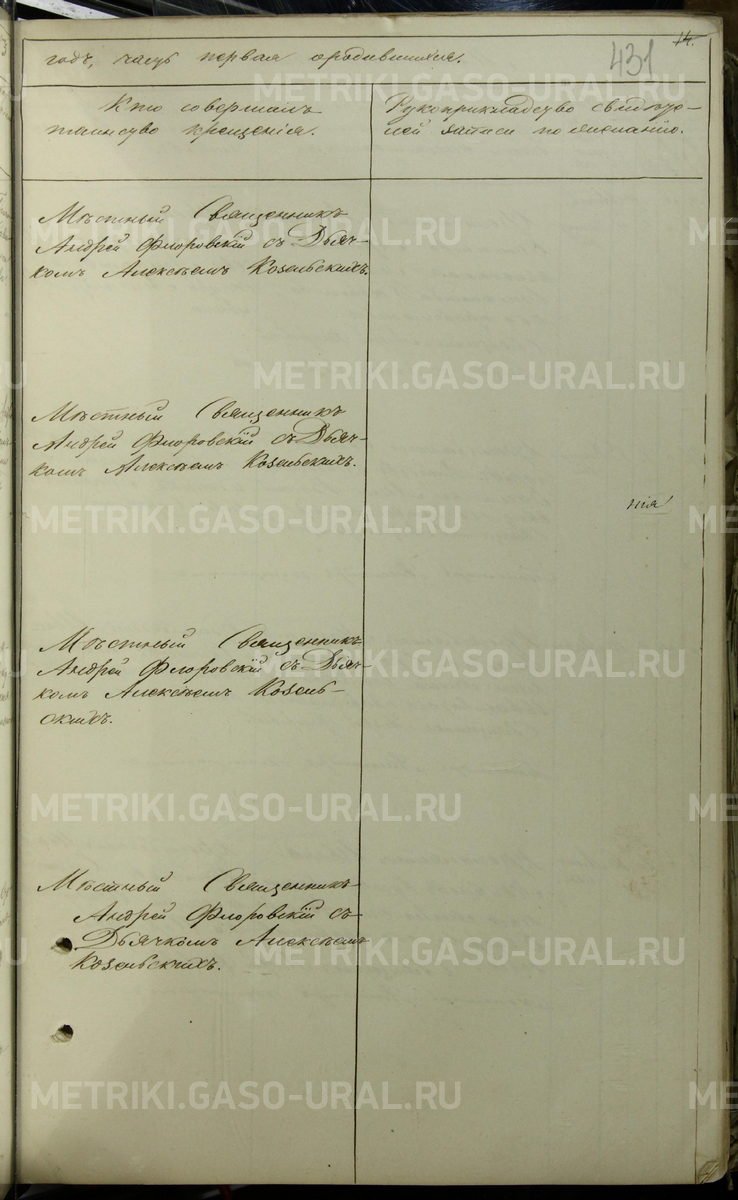 14.
431
годъ, часть первая о родившихся.
Кто совершалъ
таинство крещенія.
Рукоприкладство свидѣте-
лей записи по желанію.
Мѣстный Священникъ
Андрей Флоровскій съ Дьяч-
комъ Алексѣемъ Козельскихъ.
Мѣстный Священникъ
Андрей Флоровскій съ Дьяч-
комъ Алексѣемъ Козельскихъ.
нія
Мѣстный Священникъ
Андрей Флоровскій съ Дьяч-
комъ Алексѣемъ Козель-
скихъ.
Мѣстный Священникъ
Андрей Флоровскій съ
Дьячкомъ Алексѣемъ
Козельскихъ.
METRIKI.GASO-URAL.RU